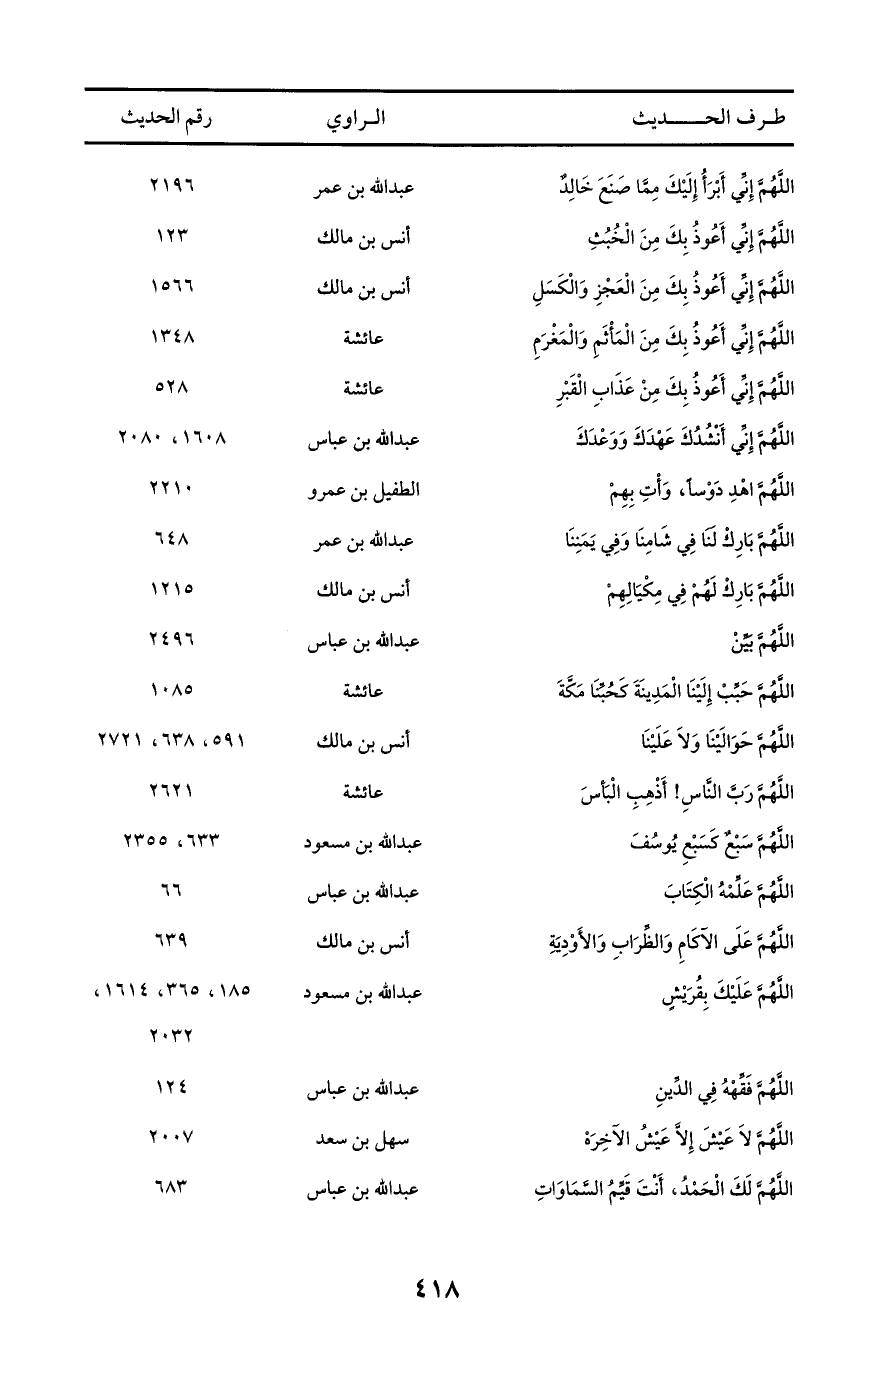 طـرف الحـــــــديث الـراوي رقم الحديث
اللَّهُمَّ إِنِّي أَبْرَأُ إِلَيْكَ مِمَّا صَنَعَ خَالِدٌ عبدالله بن عمر ٢١٩٦
اللَّهُمَّ إِنِّي أَعُوذُ بِكَ مِنَ الْخُبُثِ أنس بن مالك ١٢٣
اللَّهُمَّ إِنِّي أَعُوذُ بِكَ مِنَ الْعَجْزِ وَالْكَسَلِ أنس بن مالك ١٥٦٦
اللَّهُمَّ إِنِّي أَعُوذُ بِكَ مِنَ الْمَأْثَمِ وَالْمَغْرَمِ عائشة ١٣٤٨
اللَّهُمَّ إِنِّي أَعُوذُ بِكَ مِنْ عَذَابِ الْقَبْرِ عائشة ٥٢٨
اللَّهُمَّ إِنِّي أَنْشُدُكَ عَهْدَكَ وَوَعْدَكَ عبدالله بن عباس ١٦٠٨، ٢٠٨٠
اللَّهُمَّ اهْدِ دَوْساً، وَأْتِ بِهِمْ الطفيل بن عمرو ٢٢١٠
اللَّهُمَّ بَارِكْ لَنَا فِي شَامِنَا وَفِي يَمَنِنَا عبدالله بن عمر ٦٤٨
اللَّهُمَّ بَارِكْ لَهُمْ فِي مِكْيَالِهِمْ أنس بن مالك ١٢١٥
اللَّهُمَّ بَيِّنْ عبدالله بن عباس ٢٤٩٦
اللَّهُمَّ حَبِّبْ إِلَيْنَا الْمَدِينَةَ كَحُبِّنَا مَكَّةَ عائشة ١٠٨٥
اللَّهُمَّ حَوَالَيْنَا وَلاَ عَلَيْنَا أنس بن مالك ٥٩١، ٦٣٨، ٢٧٢١
اللَّهُمَّ رَبَّ النَّاسِ! أَذْهِبِ الْبَأسَ عائشة ٢٦٢١
اللَّهُمَّ سَبْعٌ كَسَبْعِ يُوسُفَ عبدالله بن مسعود ٦٣٣، ٢٣٥٥
اللَّهُمَّ عَلِّمْهُ الْكِتَابَ عبدالله بن عباس ٦٦
اللَّهُمَّ عَلَى الآكَامِ وَالظِّرَابِ وَالأَوْدِيَةِ أنس بن مالك ٦٣٩
اللَّهُمَّ عَلَيْكَ بِقُرَيْشٍ عبدالله بن مسعود ١٨٥، ٣٦٥، ١٦١٤،
٢٠٣٢
اللَّهُمَّ فَقِّهْهُ فِي الدِّينِ عبدالله بن عباس ١٢٤
اللَّهُمَّ لاَ عَيْشَ إِلاَّ عَيْشُ الآخِرَهْ سهل بن سعد ٢٠٠٧
اللَّهُمَّ لَكَ الْحَمْدُ، أَنْتَ قَيِّمُ السَّمَاوَاتِ عبدالله بن عباس ٦٨٣
٤١٨